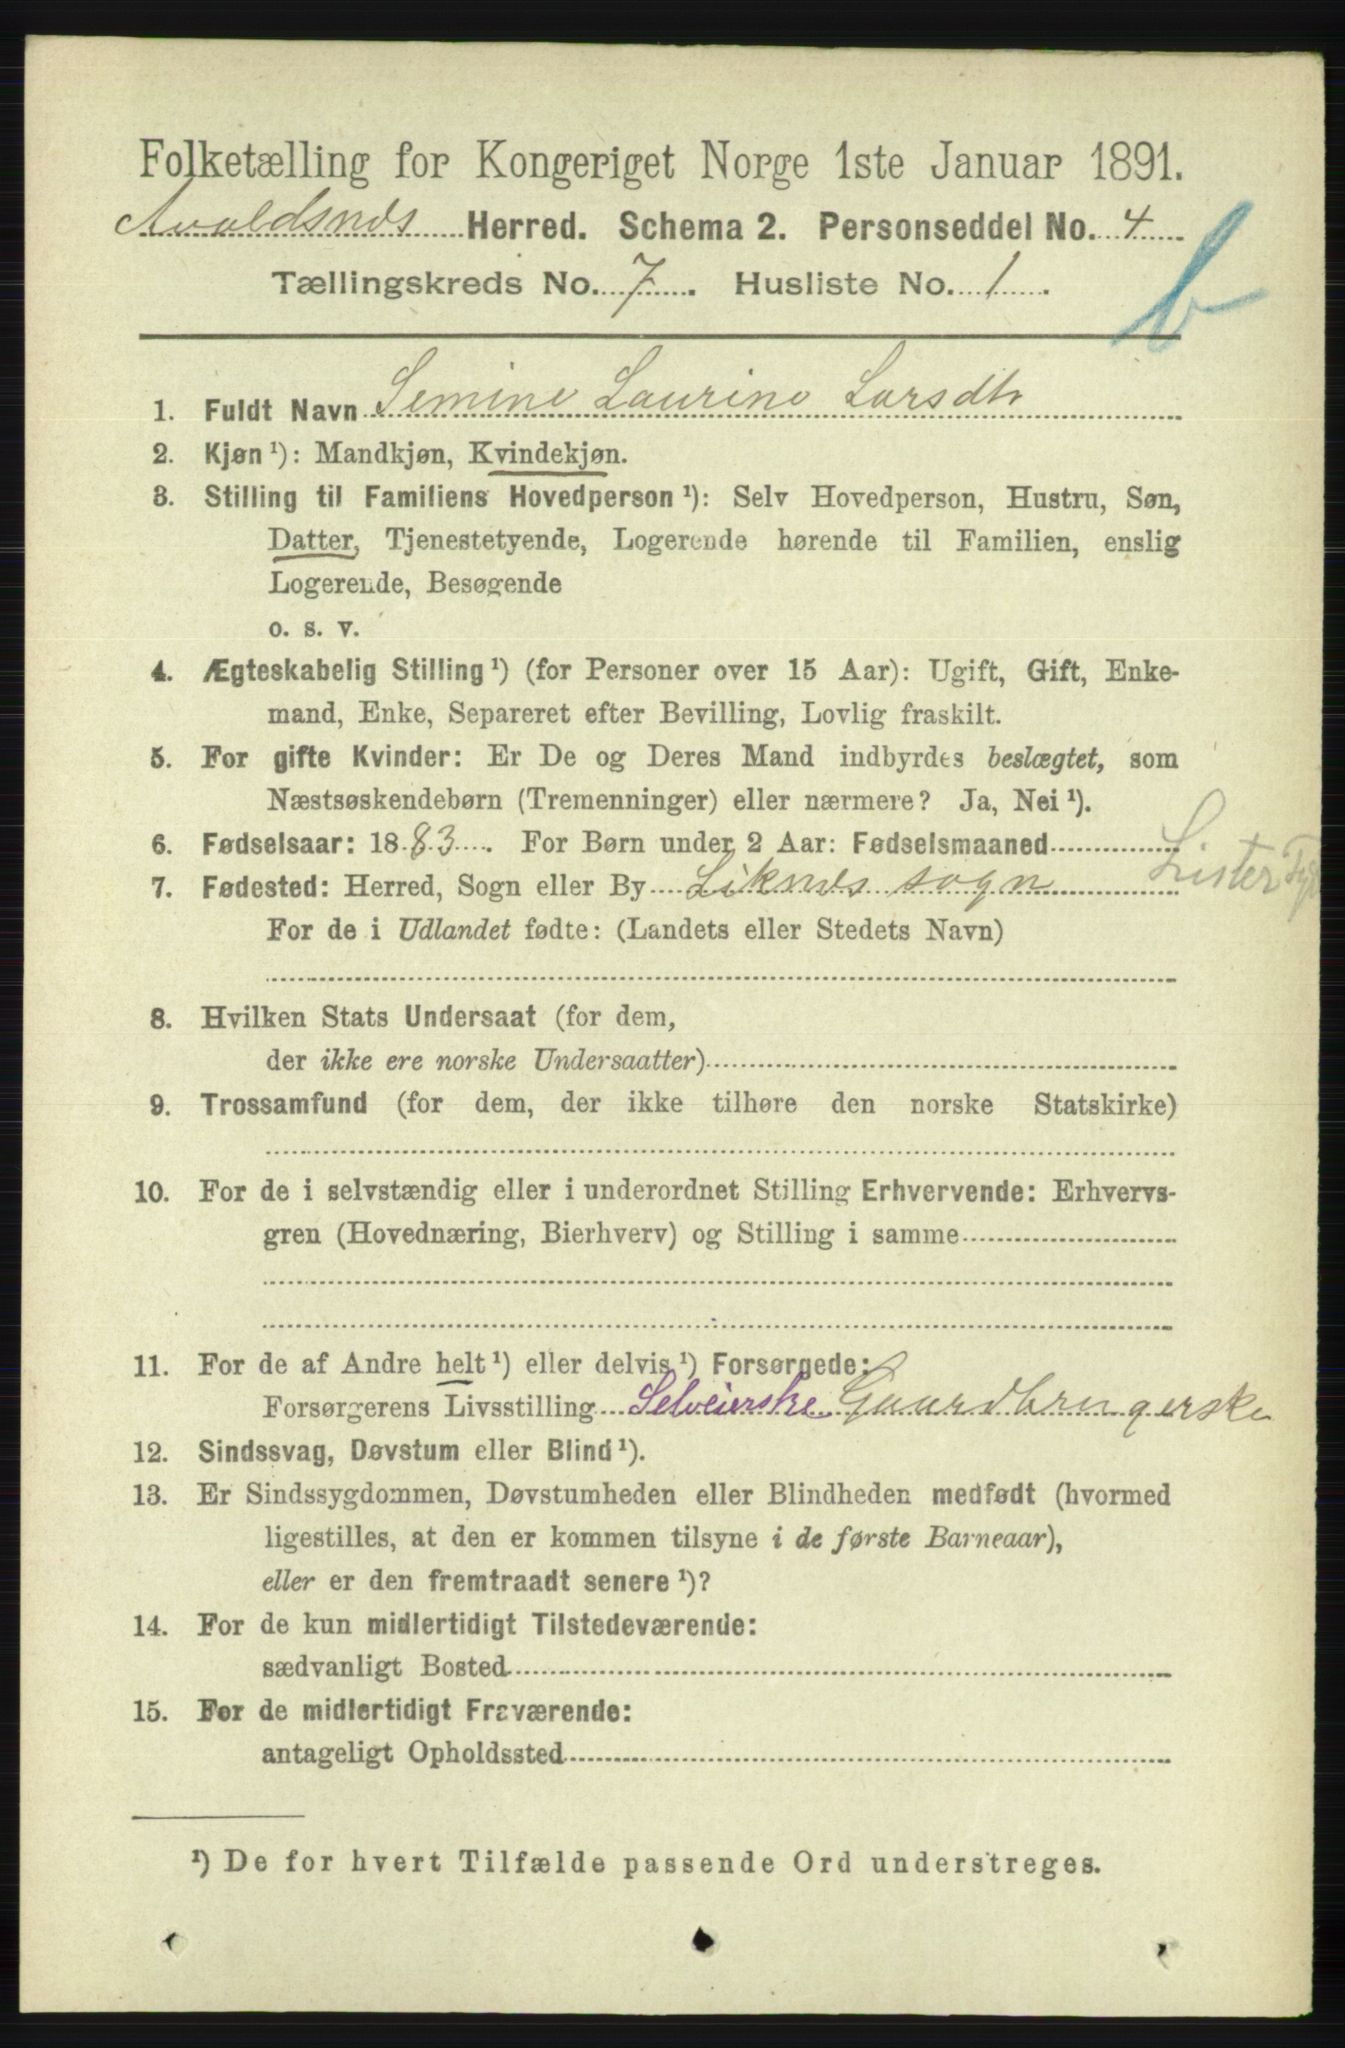 Folketælling for Kongeriget Norge 1ste Januar 1891.
Avaldsnes Herred. Schema 2. Personseddel No. 4
b
Tællingskreds No. 7. Husliste No. 1.
1. Fuldt Navn Semine Laurine Larsdtr
2. Kjøn ¹): Mandkjøn, Kvindekjøn.
3. Stilling til Familiens Hovedperson ¹): Selv Hovedperson, Hustru, Søn,
Datter, Tjenestetyende, Logerende hørende til Familien, enslig
Logerende, Besøgende
o. s. v.
4. Ægteskabelig Stilling ¹) (for Personer over 15 Aar): Ugift, Gift, Enke-
mand, Enke, Separeret efter Bevilling, Lovlig fraskilt.
5. For gifte Kvinder: Er De og Deres Mand indbyrdes beslægtet, som
Næstsøskendebørn (Tremenninger) eller nærmere? Ja, Nei ¹).
6. Fødselsaar: 1883. For Børn under 2 Aar: Fødselsmaaned
7. Fødested: Herred, Sogn eller By Liknes sogn Lister
For de i Udlandet fødte: (Landets eller Stedets Navn)
8. Hvilken Stats Undersaat (for dem,
der ikke ere norske Undersaatter)
9. Trossamfund (for dem, der ikke tilhøre den norske Statskirke)
10. For de i selvstændig eller i underordnet Stilling Erhvervende: Erhvervs-
gren (Hovednæring, Bierhverv) og Stilling i samme
11. For de af Andre helt ¹) eller delvis ¹) Forsørgede:
Forsørgerens Livsstilling Selveierske Gaardbrugerske
12. Sindssvag, Døvstum eller Blind ¹).
13. Er Sindssygdommen, Døvstumheden eller Blindheden medfødt (hvormed
ligestilles, at den er kommen tilsyne i de første Barneaar),
eller er den fremtraadt senere ¹)?
14. For de kun midlertidigt Tilstedeværende:
sædvanligt Bosted
15. For de midlertidigt Fraværende:
antageligt Opholdssted
¹) De for hvert Tilfælde passende Ord understreges.